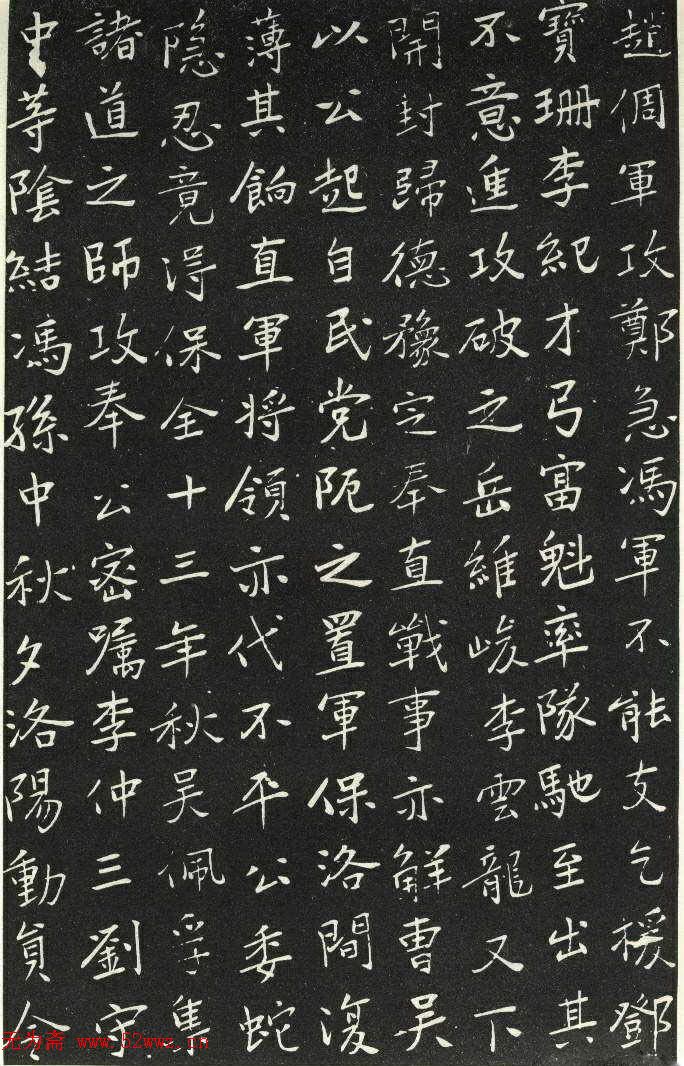 趙倜軍攻鄭急馮軍不能支乞援鄧
寶珊李紀才弓富魁率隊馳至出其
不意進攻破之岳維峻李雲龍又下
開封歸德豫定奉直戰事亦解曹吳
以公起自民党阨之置軍保洛間復
薄其餉直軍将領亦代不平公委蛇
隐忍竟淂保全十三年秋吴佩孚集
諸道之師攻奉公密嘱李仲三劉守
中等陰結馮孫中秋夕洛陽動員令
无为斋 www.52wwz.cn